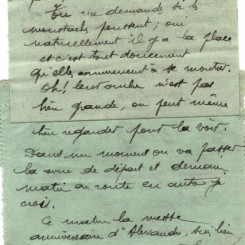 Tu me demandes si les
moustaches poussent ; oui
naturellement il y a la place
et c'est tout doucement
qu'elles commencent à se montrer.
Oh! leur ombre n'est pas
bien grande, on peut même
bien regarder pour la voir.
Dans un moment on va passer
la revue de départ et demain
matin en route en auto je
crois.
Ce matin la messe
anniversaire d'Alexandre